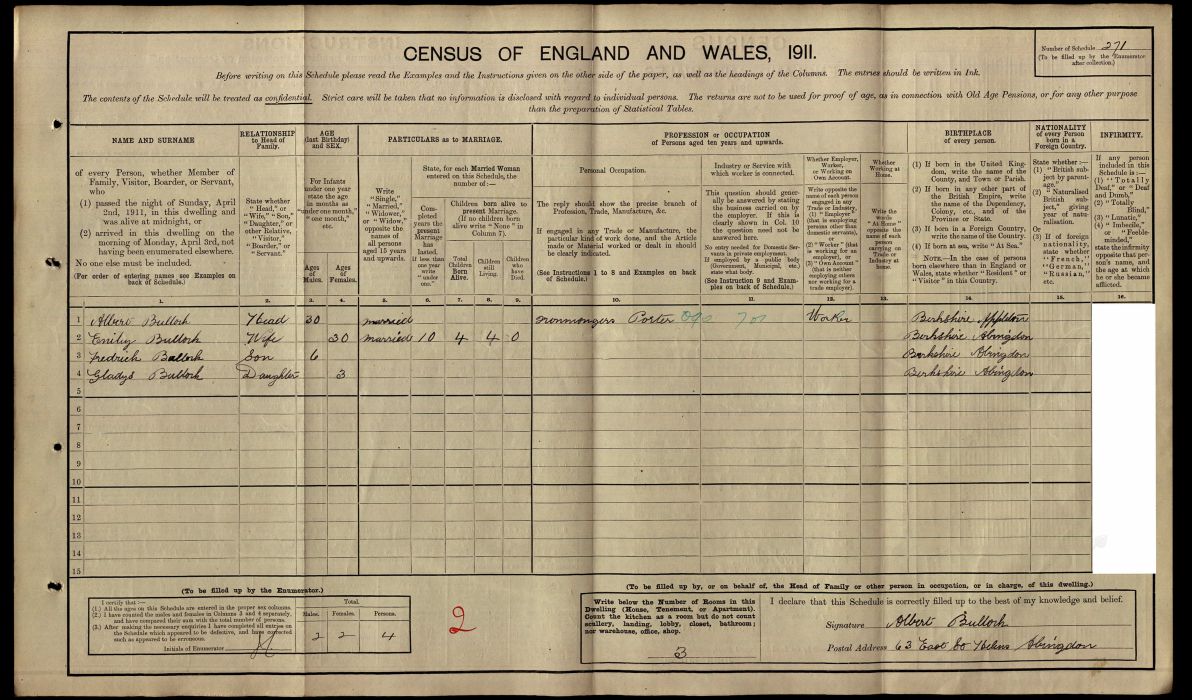 CENSUS OF ENGLAND AND WALES, 1911.
Number of Schedule 271
(To be filled up by the Enumerator
after collection.)
Before writing on this Schedule please read the Examples and the Instructions given on the other side of the paper, as well as the headings of the Columns. The entries should be written in Ink.
The contents of the Schedule will be treated as confidential. Strict care will be taken that no information is disclosed with regard to individual persons. The returns are not to be used for proof of age, as in connection with Old Age Pensions, or for any other purpose
than the preparation of Statistical Tables.
NAME AND SURNAME
of every Person, whether Member of
Family, Visitor, Boarder, or Servant,
who
(1) passed the night of Sunday, April
2nd, 1911, in this dwelling and
was alive at midnight, or
(2) arrived in this dwelling on the
morning of Monday, April 3rd, not
having been enumerated elsewhere.
No one else must be included.
(For order of entering names see Examples on
back of Schedule.)
RELATIONSHIP
to Head of
Family.
State whether
"Head," or
"Wife," "Son,"
"Daughter," or
other Relative,
"Visitor,"
"Boarder," or
"Servant."
AGE
(last Birthday)
and SEX.
For Infants
under one year
state the age
in months as
"under one month,"
"one month,"
etc.
Ages
of
Males.
Ages
of
Females.
PARTICULARS as to MARRIAGE.
Write
"Single,"
"Married,"
"Widower,"
or "Widow,"
opposite the
names of
all persons
aged 15 years
and upwards.
State, for each Married Woman
entered on this Schedule, the
number of:—
Completed
years the
present
Marriage
has
lasted.
If less than
one year
write
"under
one."
Children born alive to
present Marriage.
(If no children born
alive write "None" in
Column 7).
Total
Children
Born
Alive.
Children
still
Living.
Children
who
have
Died.
PROFESSION or OCCUPATION
of Persons aged ten years and upwards.
Personal Occupation.
The reply should show the precise branch of
Profession, Trade, Manufacture, &c.
If engaged in any Trade or Manufacture, the
particular kind of work done, and the Article
made or Material worked or dealt in should
be clearly indicated.
(See Instructions 1 to 8 and Examples on back
of Schedule.)
Industry or Service with
which worker is connected.
This question should generally
be answered by stating
the business carried on by
the employer. If this is
clearly shown in Col. 10
the question need not be
answered here.
No entry needed for Domestic Servants
in private employment.
If employed by a public body
(Government, Municipal, etc.)
state what body.
(See Instruction 9 and Examples
on back of Schedule.)
Whether Employer,
Worker,
or Working on
Own Account.
Write opposite the
name of each person
engaged in any
Trade or Industry,
(1) "Employer"
(that is employing
persons other than
domestic servants),
or
(2) "Worker" (that
is working for an
employer), or
(3) "Own Account"
(that is neither
employing others
nor working for a
trade employer).
Whether
Working at
Home.
Write the
words
"At Home"
opposite the
name of each
person
carrying on
Trade or
Industry at
home.
BIRTHPLACE
of every person.
(1) If born in the United Kingdom,
write the name of the
County, and Town or Parish.
(2) If born in any other part of
the British Empire, write
the name of the Dependency,
Colony, etc., and of the
Province or State.
(3) If born in a Foreign Country,
write the name of the Country.
(4) If born at sea, write "At Sea."
NOTE.—In the case of persons
born elsewhere than in England or
Wales, state whether "Resident" or
"Visitor" in this Country.
NATIONALITY
of every Person
born in a
Foreign Country.
State whether:—
(1) "British subject
by parentage,"
(2) "Naturalised
British subject,"
giving
year of naturalisation.
Or
(3) If of foreign
nationality,
state whether
"French,"
"German,"
"Russian,"
etc.
INFIRMITY.
If any person
included in this
Schedule is:—
(1) "Totally
Deaf," or "Deaf
and Dumb,"
(2) "Totally
Blind,"
(3) "Lunatic,"
(4) "Imbecile,"
or "Feeble-
minded,"
state the infirmity
opposite that person's
name, and
the age at which
he or she became
afflicted.
1. 2. 3. 4. 5. 6. 7. 8. 9. 10. 11. 12. 13. 14. 15. 16.
1 Albert Bullock Head 30 married Ironmongers Porter 701 Worker Berkshire Appleton
2 Emily Bullock Wife 30 married 10 4 4 0 Berkshire Abingdon
3 Fredrick Bullock Son 6 Berkshire Abingdon
4 Gladys Bullock Daughter 3 Berkshire Abingdon
5
6
7
8
9
10
11
12
13
14
15
(To be filled up by the Enumerator.)
I certify that:—
(1.) All the ages on this Schedule are entered in the proper sex columns.
(2.) I have counted the males and females in Columns 3 and 4 separately,
and have compared their sum with the total number of persons.
(3.) After making the necessary enquiries I have completed all entries on
the Schedule which appeared to be defective, and have corrected
such as appeared to be erroneous.
Initials of Enumerator
Total.
Males. Females. Persons.
2 2 4
2
(To be filled up by, or on behalf of, the Head of Family or other person in occupation, or in charge, of this dwelling.)
Write below the Number of Rooms in this
Dwelling (House, Tenement, or Apartment).
Count the kitchen as a room but do not count
scullery, landing, lobby, closet, bathroom;
nor warehouse, office, shop.
3
I declare that this Schedule is correctly filled up to the best of my knowledge and belief.
Signature Albert Bullock
Postal Address 63 East St Helens Abingdon